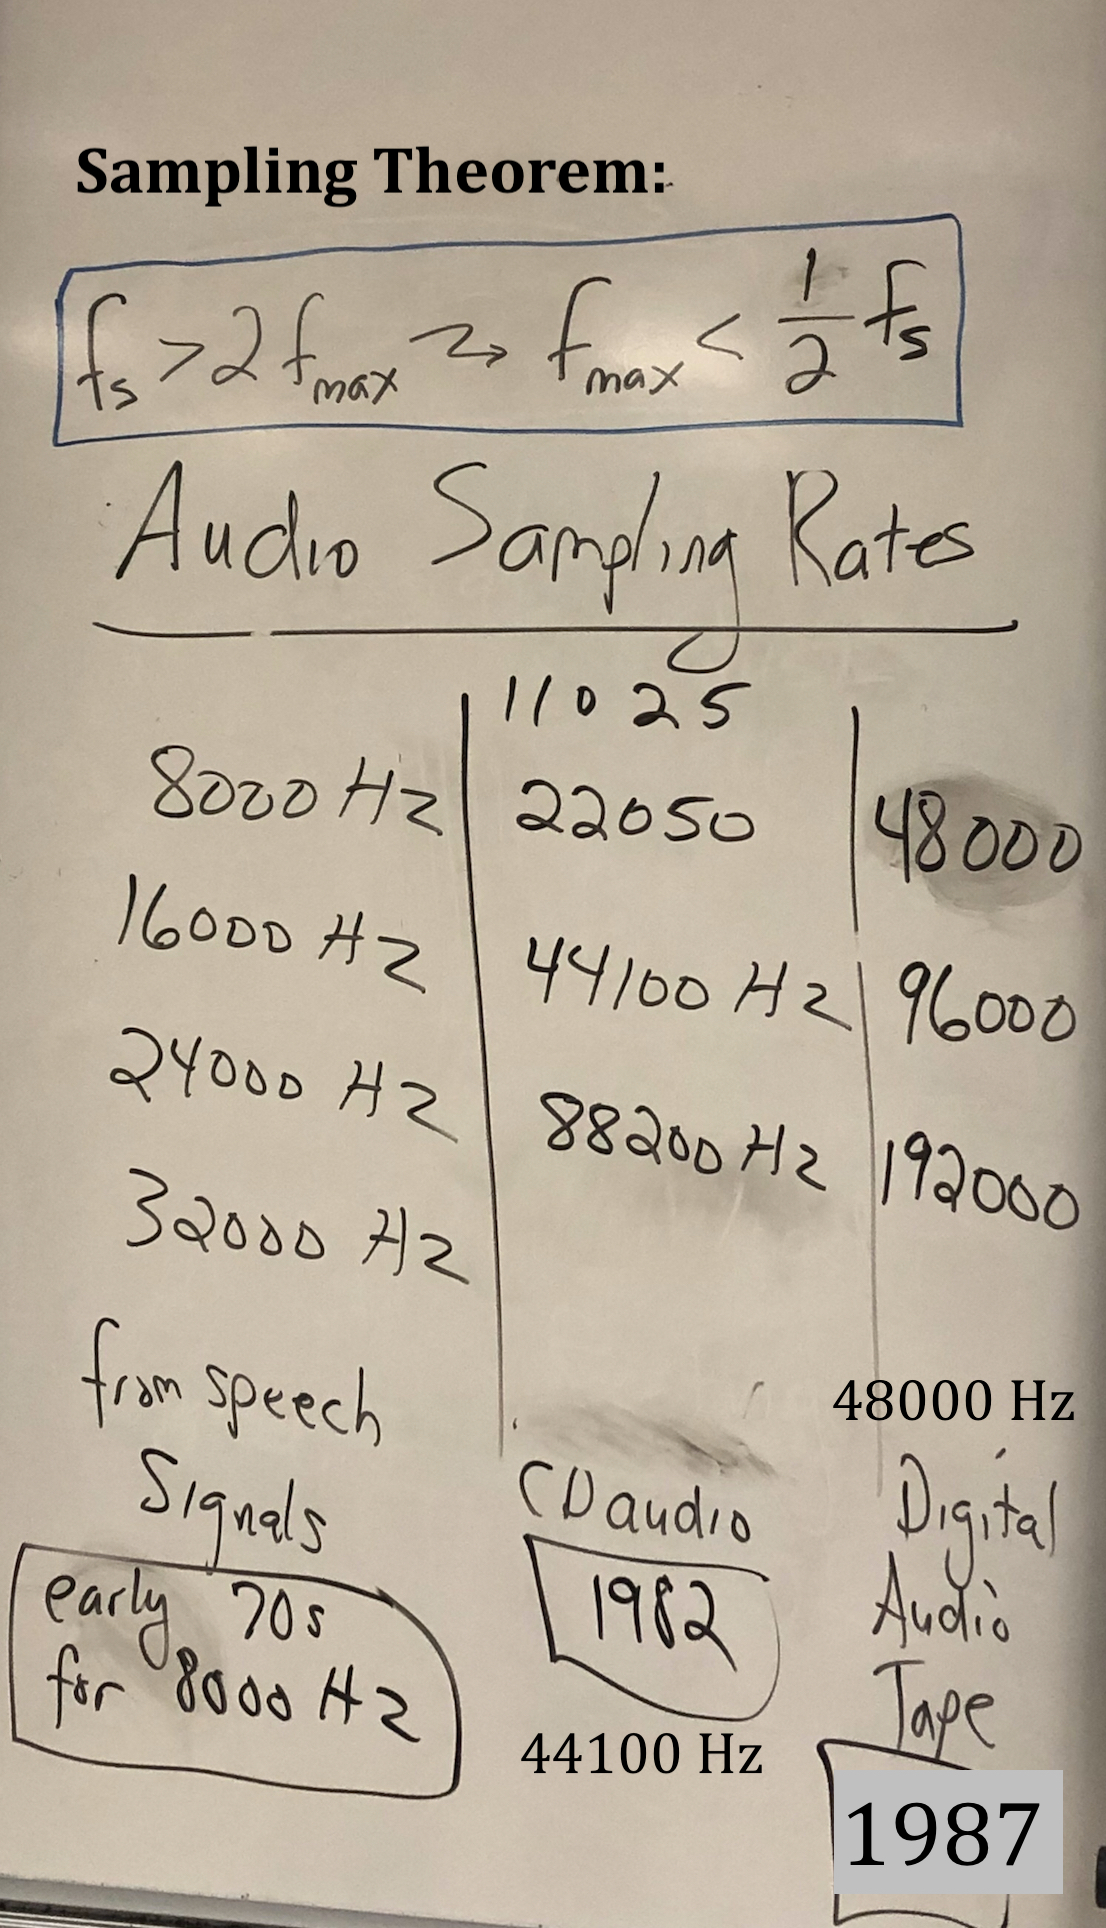 Sampling Theorem:
fs > 2 fmax ⤳ fmax < 1/2 fs
Audio Sampling Rates
8000 Hz
16000 Hz
24000 Hz
32000 Hz
from speech
Signals
early 70s
for 8000 Hz
11025
22050
44100 Hz
88200 Hz
CD audio
1982
44100 Hz
48000
96000
192000
48000 Hz
Digital
Audio
Tape
1987